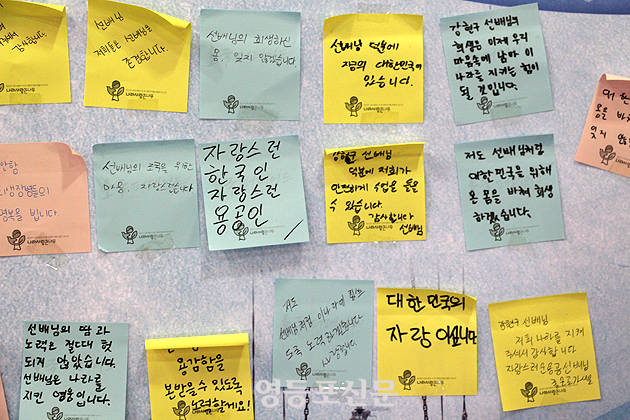 감사합니다
선배님
저희들은 선배님을
존경합니다.
나라사랑큰나무
선배님의 희생하신
몸, 잊지 않겠습니다
선배님 덕분에
지금의 대한민국에
있습니다.
강현구 선배님의
희생은 이제 우리
마음속에 남아 이
나라를 지키는 힘이
될 것입니다.
몸을 바
잊지 않
희생장병들의
명복을 빕니다
나라사랑큰나무
선배님의 조국을 위한
마음. 자랑스럽습니다
나라사랑큰나무
자랑스런
한국인
자랑스런
용공인
강현구 선배님
덕분에 저희가
안전하게 수업을 들을
수 있습니다.
감사합니다
선배님
저도 선배님처럼
대한민국을 위해
온 몸을 바쳐 희생
하겠습니다.
나라사랑큰나무
선배님의 땀과
노력은 절대로 헛
되게 않았습니다.
선배님은 나라를
지킨 영웅입니다.
용감함을
본받을 수 있도록
노력할게요!
저도
선배님처럼 이 나라에 필요
도록 노력하겠습니다
대한민국의
자랑이십니다
강현구 선배님
저희 나라를 지켜
주셔서 감사합니다
자랑스러운 용공선배님
영등포신문